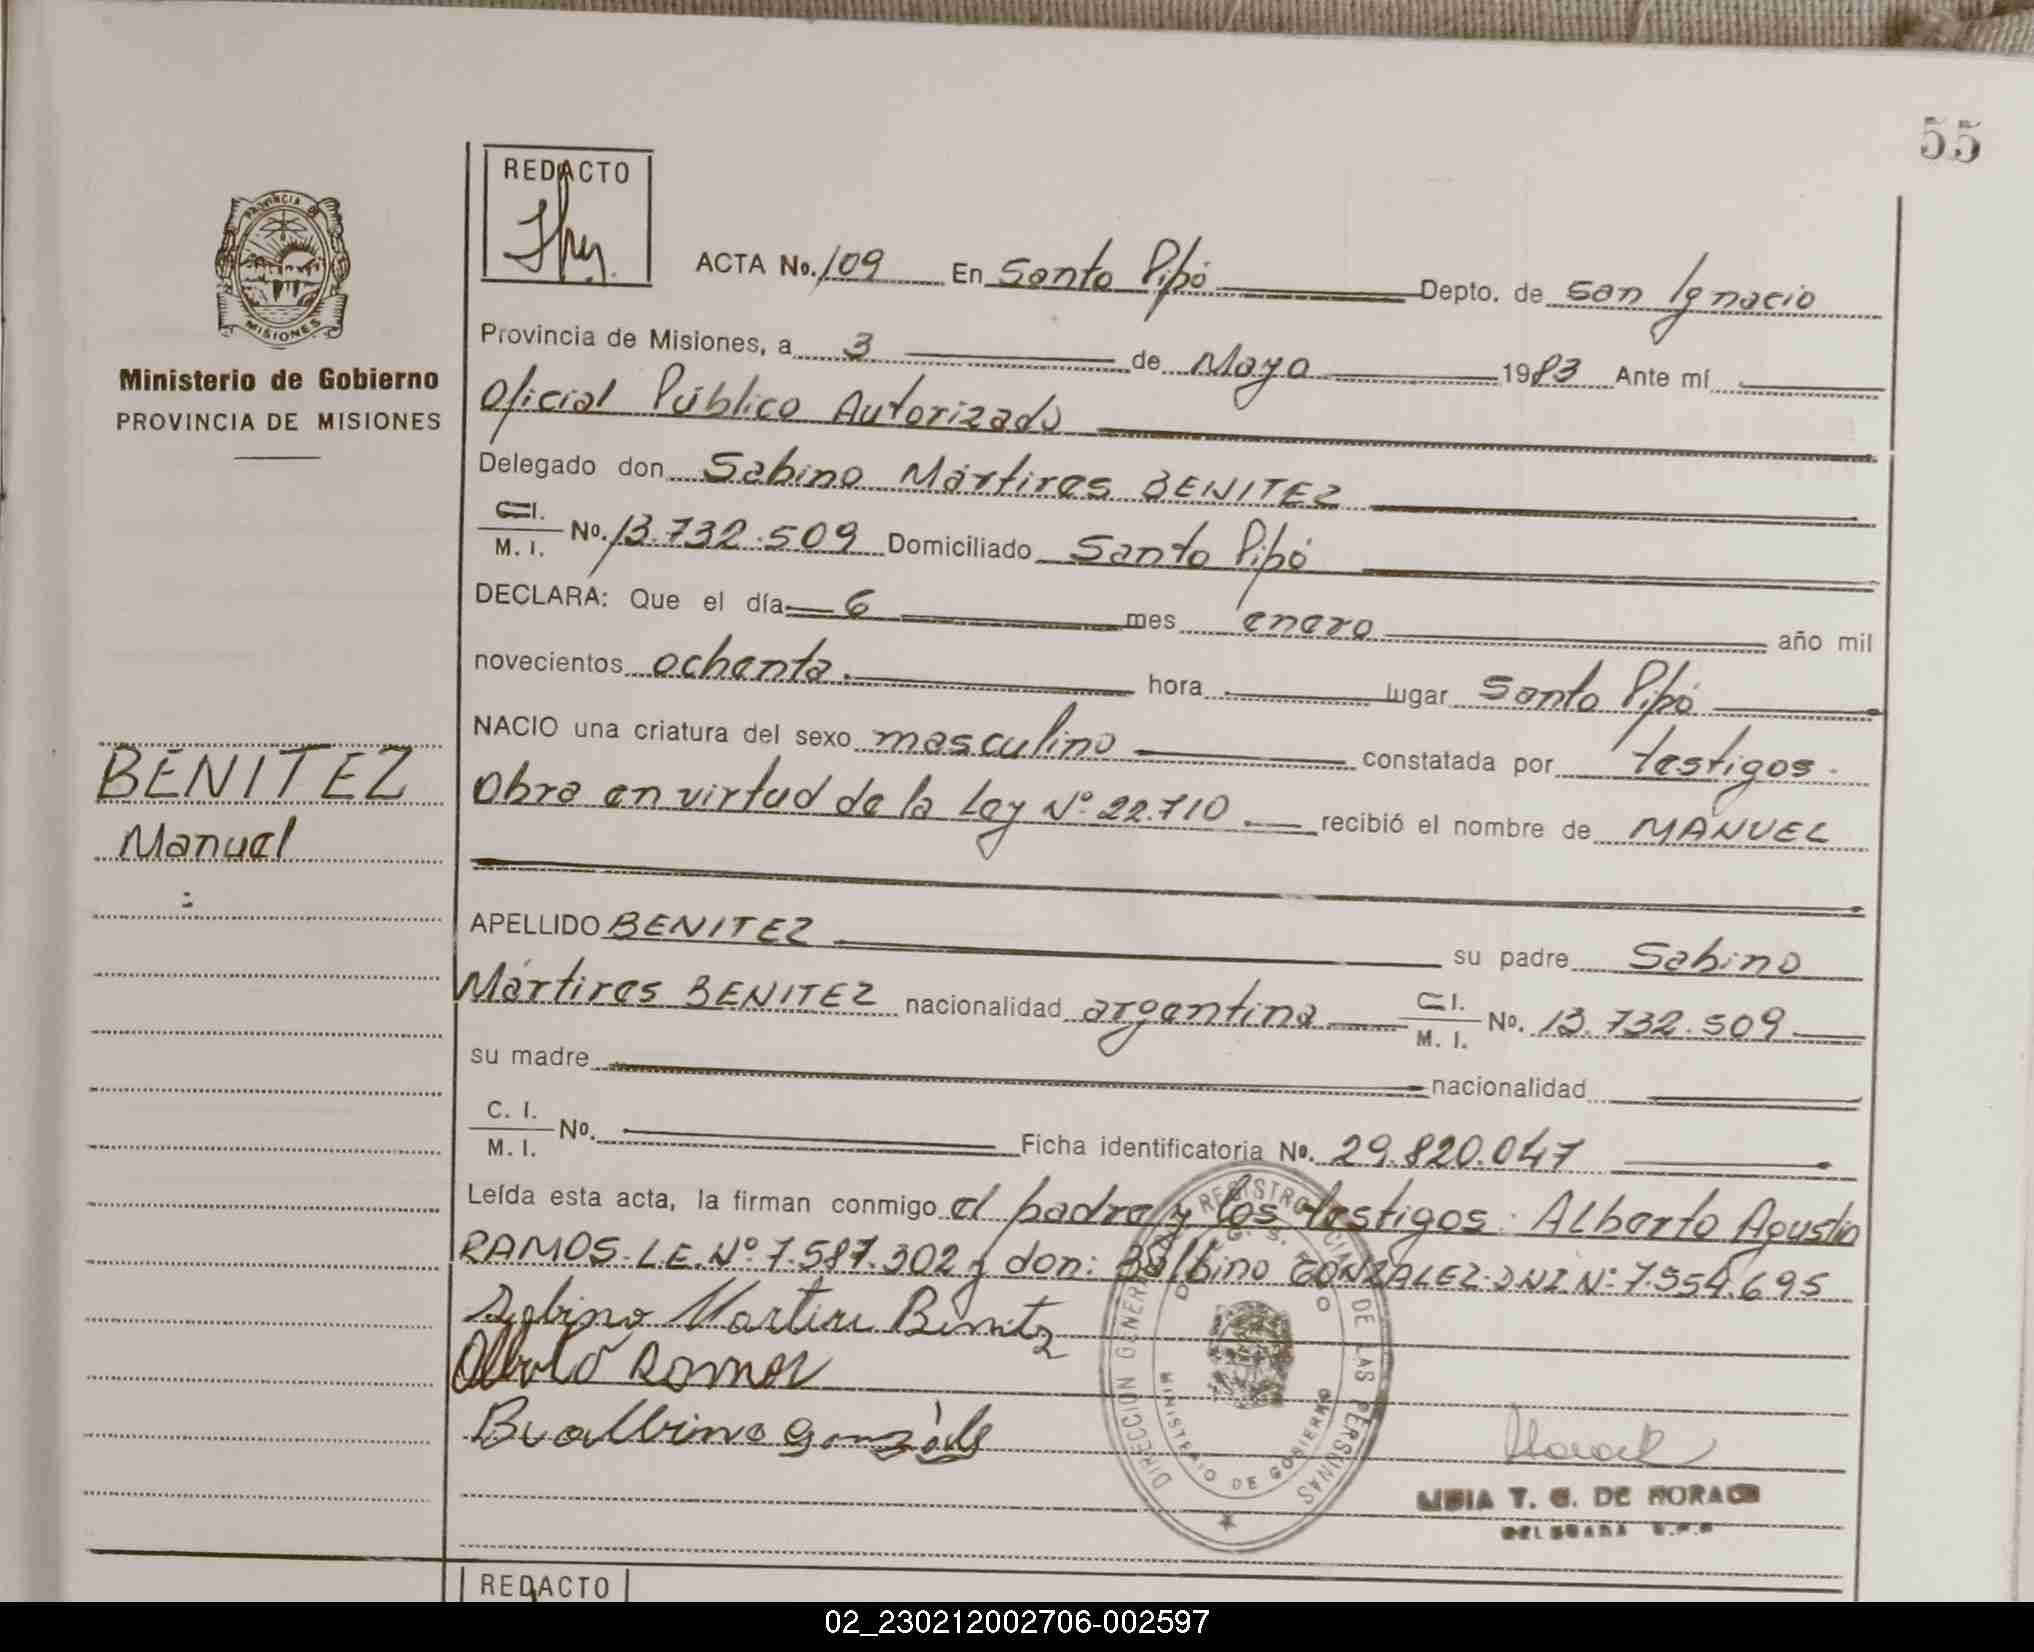 55
REDACTO
ACTA No. 109 En Santo Pipó Depto. de San Ignacio
PROVINCIA DE
MISIONES
Provincia de Misiones, a 3 de Mayo 1983 Ante mí
Ministerio de Gobierno
PROVINCIA DE MISIONES
Oficial Público Autorizado
Delegado don Sabino Mártires BENITEZ
C.I.
M. I. No. 13.732.509 Domiciliado Santo Pipó
DECLARA: Que el día 6 mes enero año mil
novecientos ochenta. hora lugar Santo Pipó
NACIO una criatura del sexo masculino constatada por testigos.
BENITEZ
Manuel
Obra en virtud de la Ley Nº 22.710 recibió el nombre de MANUEL
APELLIDO BENITEZ su padre Sabino
Mártires BENITEZ nacionalidad argentina C.I.
M. I. No. 13.732.509
su madre nacionalidad
C. I.
M. I. No. Ficha identificatoria No. 29.820.047
Leída esta acta, la firman conmigo el padre y los testigos: Alberto Agustin
RAMOS. L.E. Nº 7.587.302 y don: Balbino GONZALEZ. DNI. Nº 7.554.695
Sabino Martire Benitz
Alberto Ramos
Bualbino
DIRECCION GENERAL REGISTRO CIVIL DE LAS PERSONAS
MINISTERIO DE GOBIERNO
T. G. DE
REDACTO
02_230212002706-002597